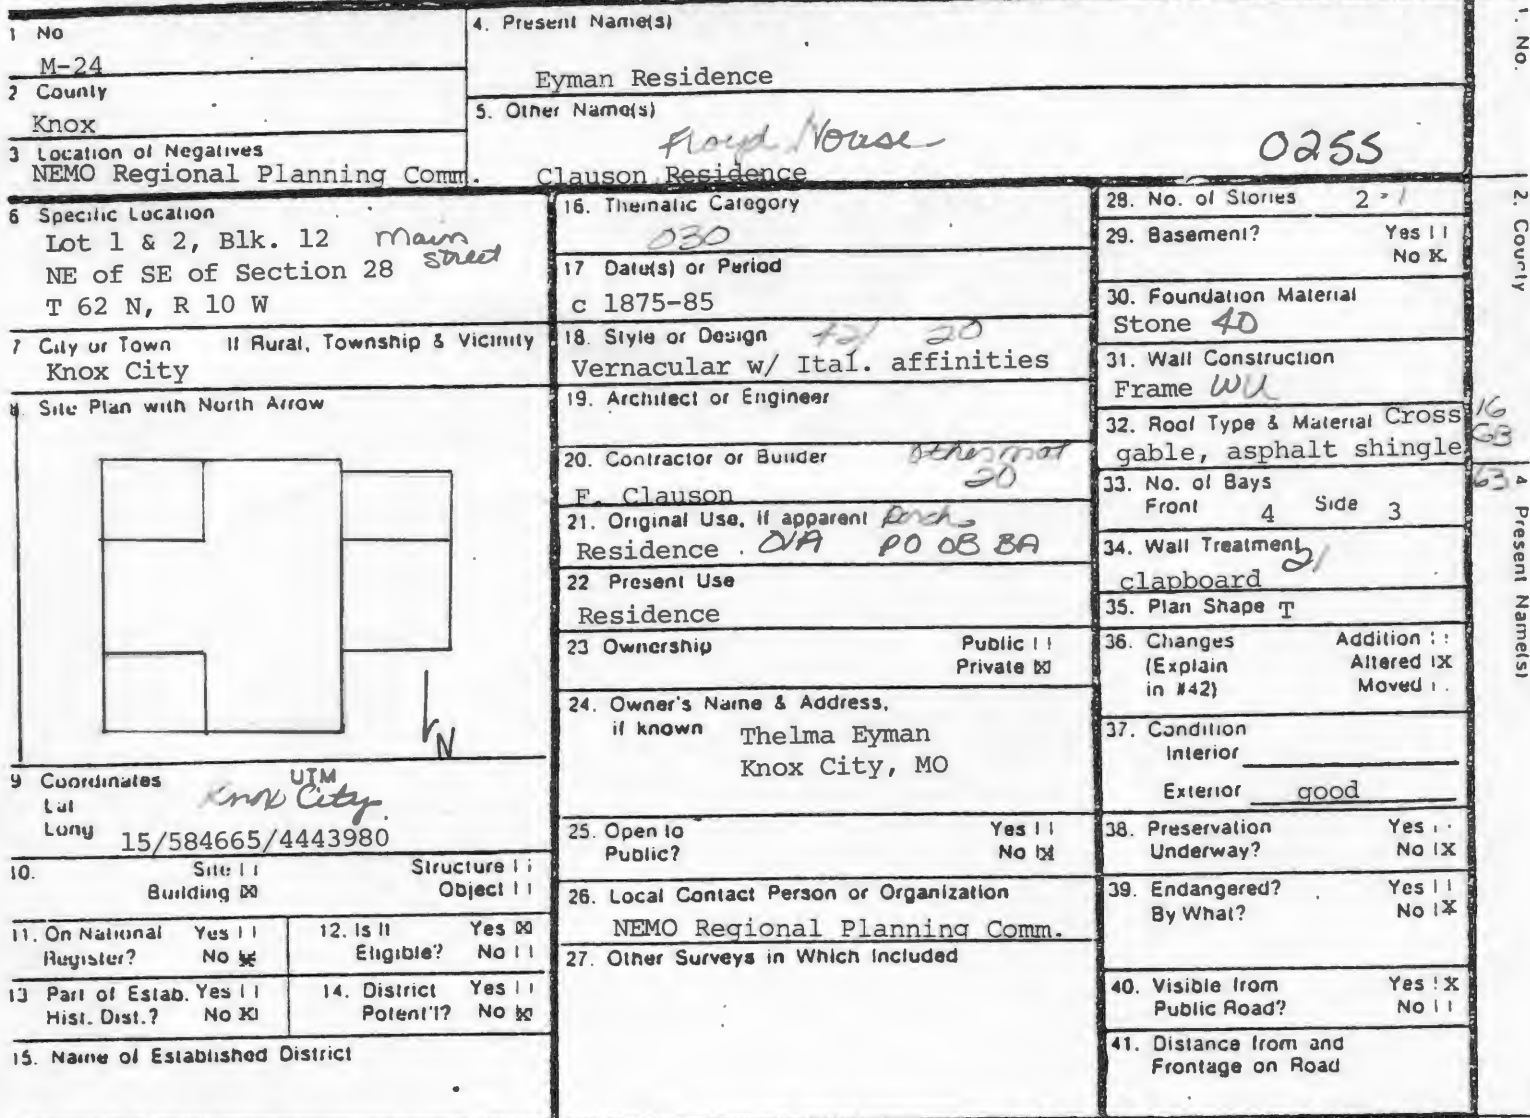 1 No
M-24
2 County
Knox
3 Location of Negatives
NEMO Regional Planning Comm.
4. Present Name(s)
Eyman Residence
5. Other Name(s)
Floyd House
0255
Clauson Residence
6 Specific Location
Lot 1 & 2, Blk. 12 Main Street
NE of SE of Section 28
T 62 N, R 10 W
7 City or Town If Rural, Township & Vicinity
Knox City
8. Site Plan with North Arrow
N
9 Coordinates UTM
Lat Knox City
Long 15/584665/4443980
10. Site Structure
Building X Object
11. On National Register? Yes No X
12. Is It Eligible? Yes X No
13 Part of Estab. Hist. Dist.? Yes No X
14. District Potent'l? Yes No X
15. Name of Established District
16. Thematic Category
030
17 Date(s) or Period
c 1875-85
18. Style or Design 20
Vernacular w/ Ital. affinities
19. Architect or Engineer
20. Contractor or Builder
20
F. Clauson
21. Original Use, if apparent Porch
Residence PO OB BA
22 Present Use
Residence
23 Ownership Public
Private X
24. Owner's Name & Address,
if known Thelma Eyman
Knox City, MO
25. Open to Yes
Public? No X
26. Local Contact Person or Organization
NEMO Regional Planning Comm.
27. Other Surveys in Which Included
28. No. of Stories 2-1
29. Basement? Yes
No X
30. Foundation Material
Stone 40
31. Wall Construction
Frame WU
32. Roof Type & Material Cross
gable, asphalt shingle
16
GB
63
33. No. of Bays
Front 4 Side 3
34. Wall Treatment
21
clapboard
35. Plan Shape T
36. Changes Addition
(Explain Altered X
in #42) Moved
37. Condition
Interior
Exterior good
38. Preservation Yes
Underway? No X
39. Endangered? Yes
By What? No X
40. Visible from Yes X
Public Road? No
41. Distance from and
Frontage on Road
1. No.
2. County
4 Present Name(s)